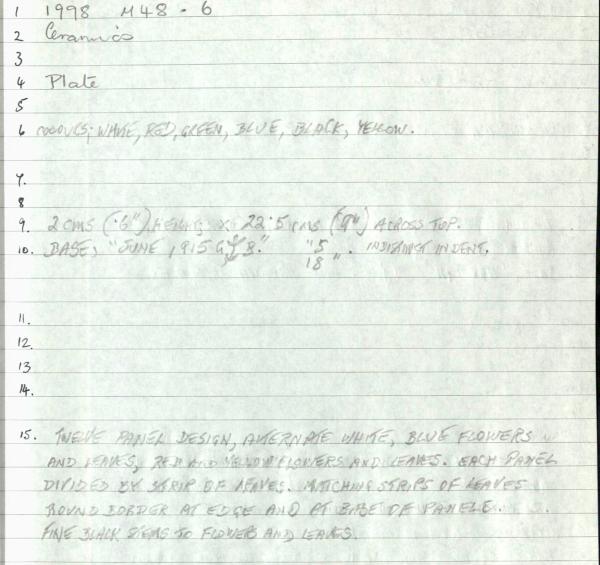 1 1998 M48 . 6
2 Ceramics
3
4 Plate
5
6 COLOURS; WHITE, RED, GREEN, BLUE, BLACK, YELLOW.
7.
8
9. 2 CMS (.6") HEIGHT X 22.5 CMS (9") ACROSS TOP.
10. BASE; "JUNE 1915 G B." "5 . INDISTINCT INDENT.
18 "
11.
12.
13
14.
15. TWELVE PANEL DESIGN, ALTERNATE WHITE, BLUE FLOWERS
AND LEAVES, RED AND YELLOW FLOWERS AND LEAVES. EACH PANEL
DIVIDED BY STRIP OF LEAVES. MATCHING STRIPS OF LEAVES
ROUND BORDER AT EDGE AND AT BASE OF PANELS.
FINE BLACK STEMS TO FLOWERS AND LEAVES.